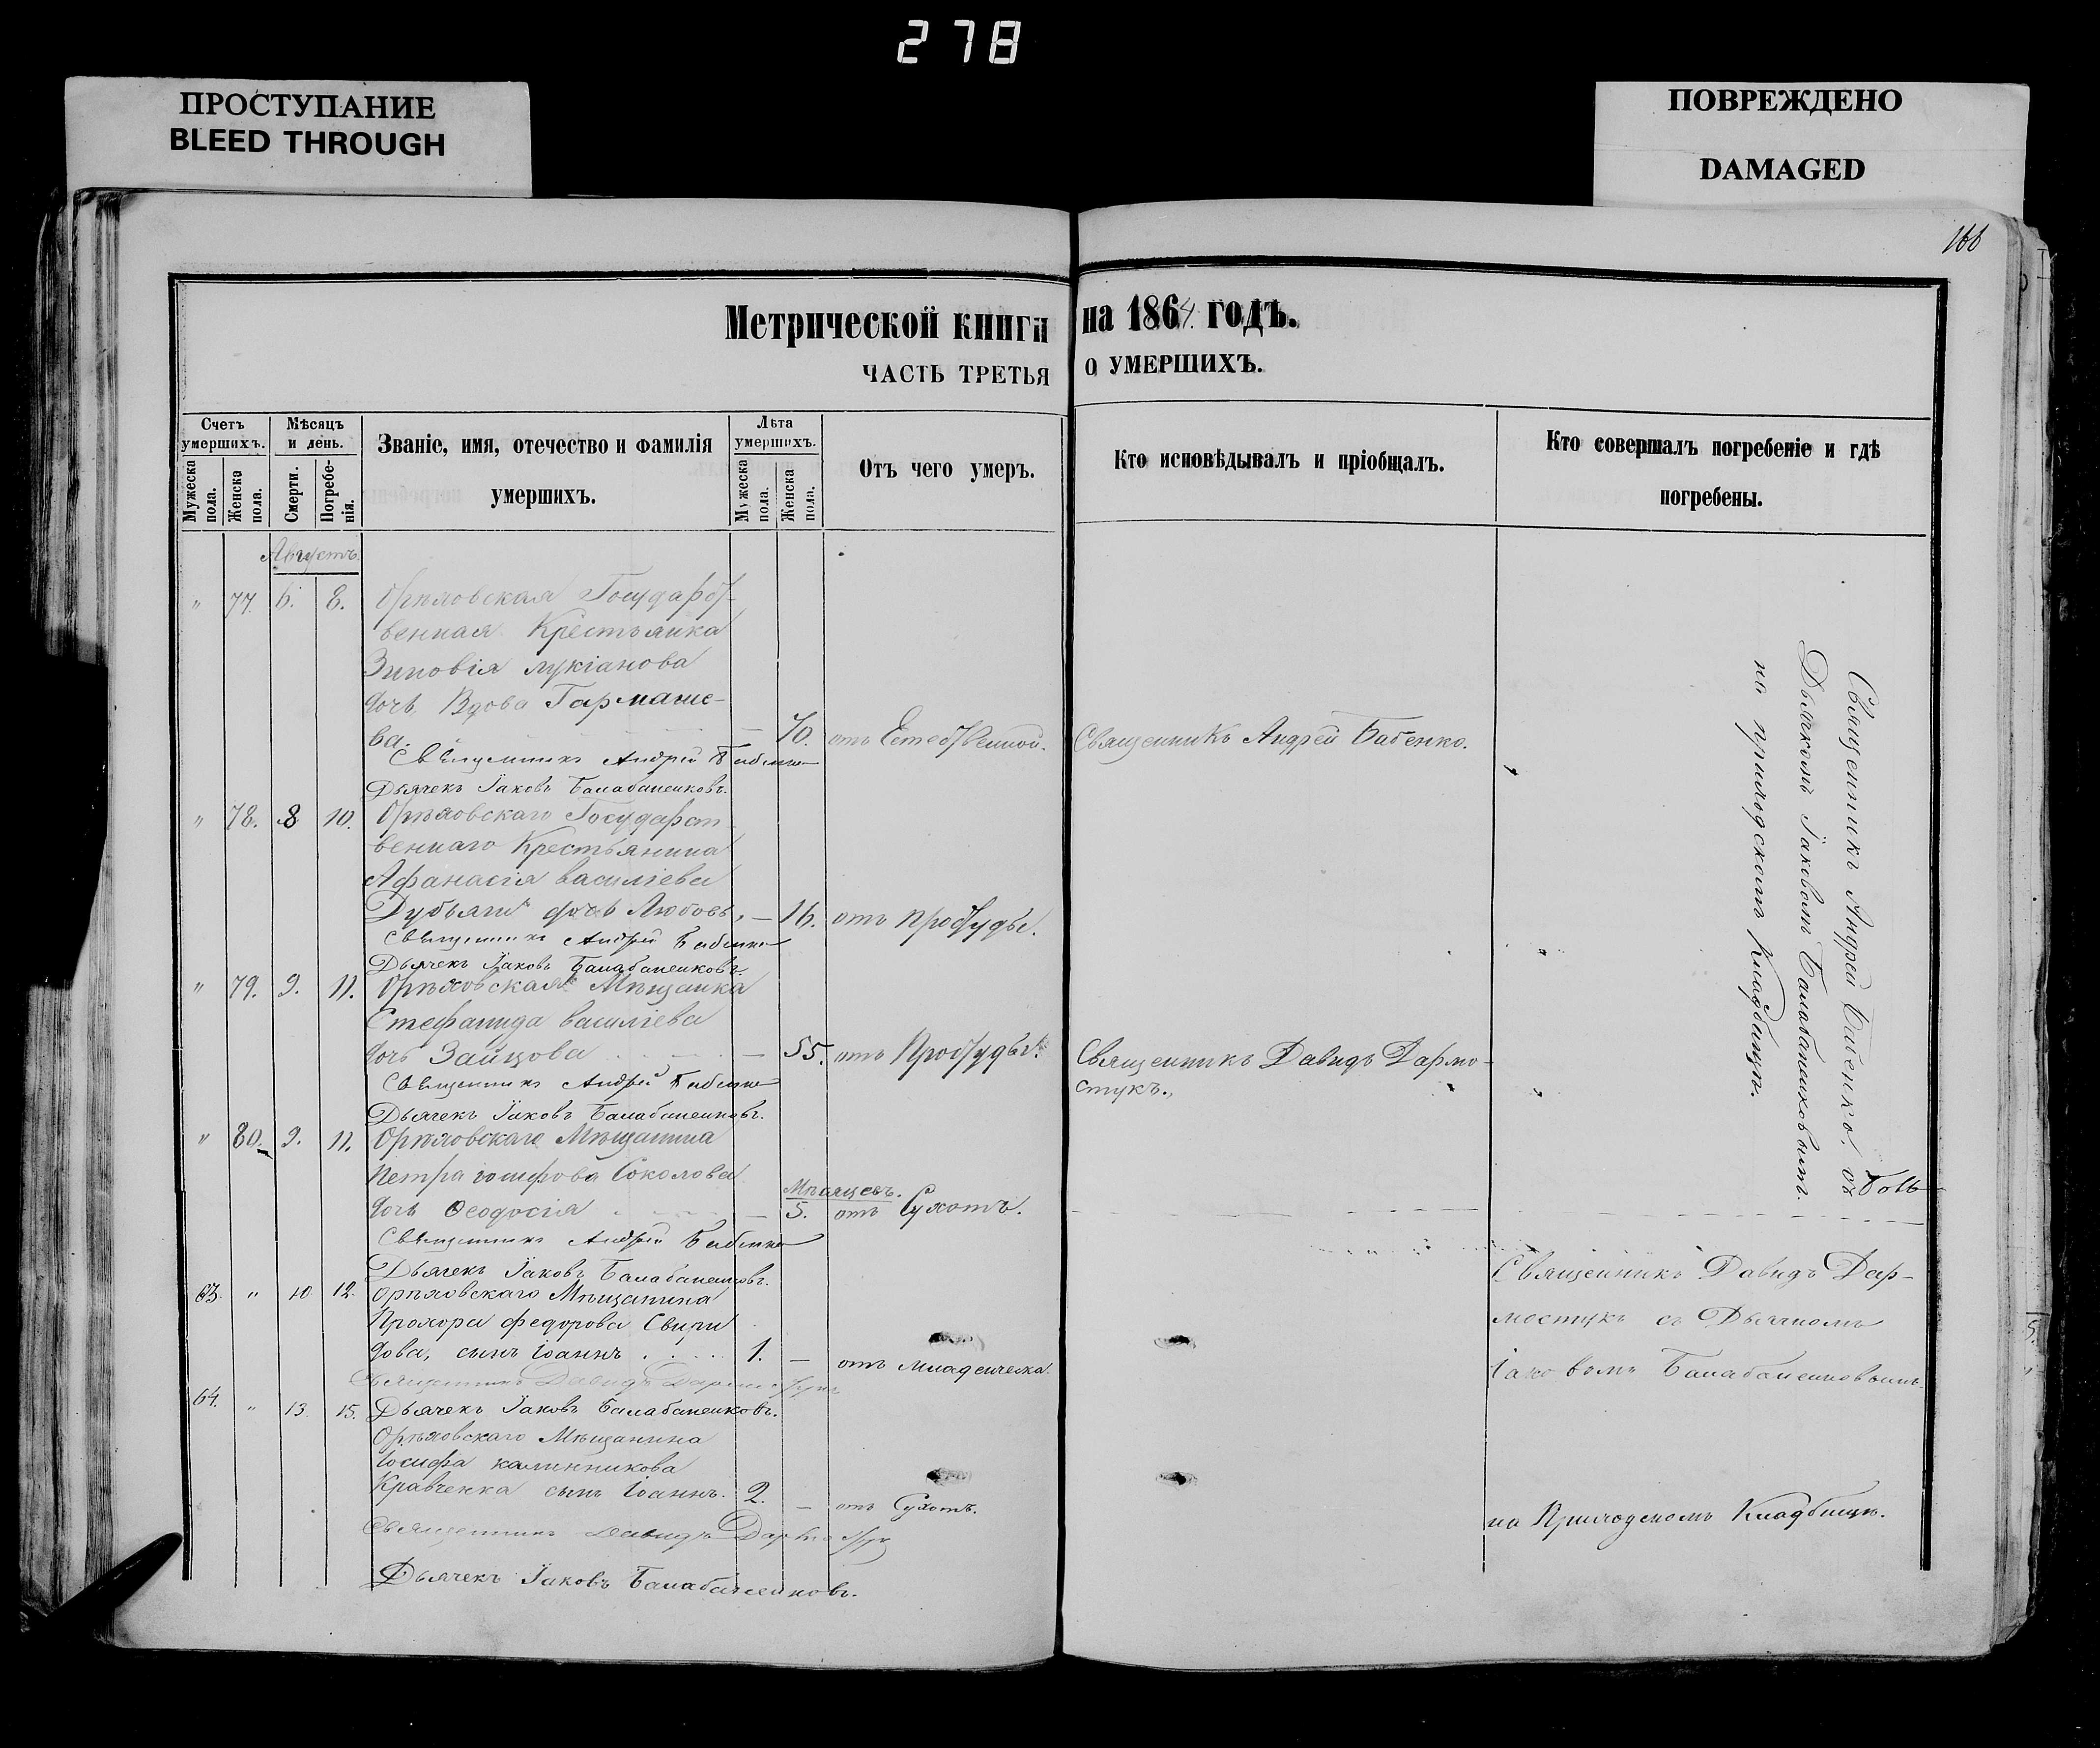 278
ПРОСТУПАНИЕ
BLEED THROUGH
ПОВРЕЖДЕНО
DAMAGED
166
Метрической книги на 1864 годъ.
ЧАСТЬ ТРЕТЬЯ О УМЕРШИХЪ.
Счетъ умершихъ.
Мужеска пола.
Женска пола.
Мѣсяцъ и день.
Смерти.
Погребенія.
Званіе, имя, отечество и фамилія умершихъ.
Лѣта умершихъ.
Мужеска пола.
Женска пола.
Отъ чего умеръ.
Кто исповѣдывалъ и пріобщалъ.
Кто совершалъ погребеніе и гдѣ погребены.
Августъ
" 77. 6. 8. Орѣховская Государст-
венная Крестьянка
Зиновія лукіанова
дочь Вдова Гармаше-
ва. — 70. отъ Естественной. Священникъ Андрей Бабенко.
Священникъ Андрей Бабенко
Дьячекъ Іаковъ Балабаненковъ.
" 78. 8 10. Орѣховскаго Государст
веннаго Крестьянина
Афанасія василіева
дочь Любовь, — 16. отъ простуды.
Священникъ Андрей Бабенко
Дьячекъ Іаковъ Балабаненковъ.
" 79. 9. 11. Орѣховская Мѣщанка
Стефанида василіева
дочь Зайцова — 55. отъ Простуды. Священникъ Давидъ Дармо-
стукъ.
Священникъ Андрей Бабенко
Дьячекъ Іаковъ Балабаненковъ.
" 80. 9. 11. Орѣховскаго Мѣщанина
Петра іосифова Соколова
Мѣсяцевъ.
дочь Ѳеодосія — 5. отъ Сухотъ.
Священникъ Андрей Бабенко
Дьячекъ Іаковъ Балабаненковъ.
Священникъ Андрей Бабенко. съ
Дьячкомъ Іаковомъ Балабаненковымъ.
на приходскомъ Кладбищѣ.
63. " 10. 12. Орѣховскаго Мѣщанина
Прохора федорова Свири
дова, сынъ Іоаннъ 1. — отъ младенческа.
Священникъ Давидъ Дармостукъ
64. " 13. 15. Дьячекъ Іаковъ Балабаненковъ.
Орѣховскаго Мѣщанина
Іосифа калинникова
Кравченка сынъ Іоаннъ. 2. — отъ Сухотъ.
Священникъ Давидъ Дармостукъ
Дьячекъ Іаковъ Балабаненковъ.
Священникъ Давидъ Дар-
мостукъ съ Дьячкомъ
Іаковомъ Балабаненковымъ
на Приходскомъ Кладбищѣ.